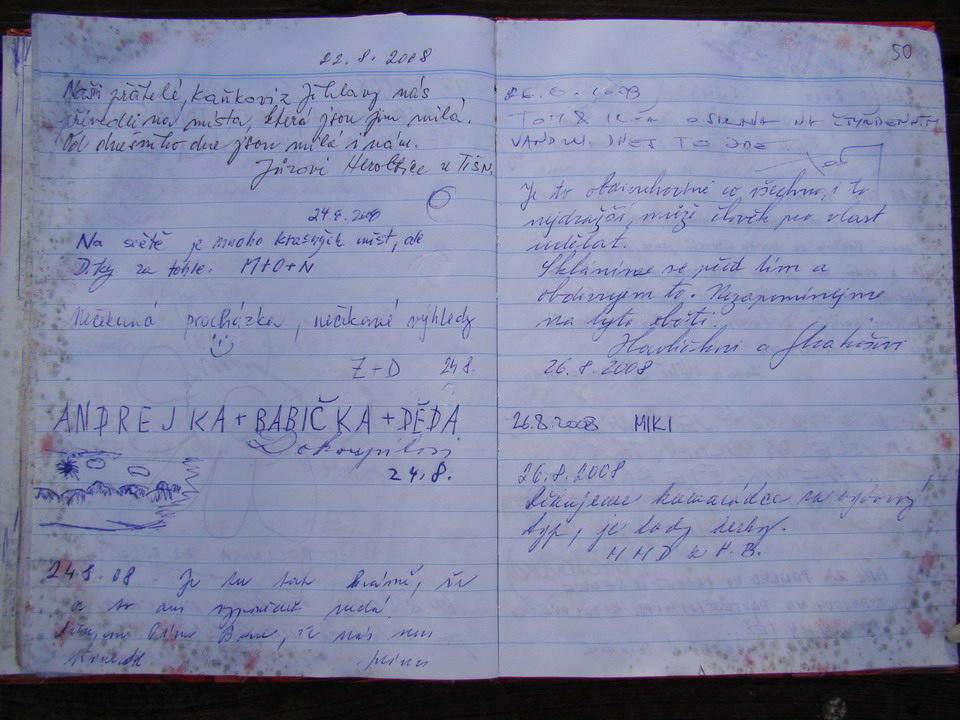 22.8.2008
Naši přátelé, Kaňkovi z Jihlavy nás
přivedli na místa, která jsou jim milá.
Od dnešního dne jsou milá i nám.
Jůzovi Heroltice u Tišn.
24.8.2008
Na světě je mnoho krásných míst, ale
Díky za tohle. M+O+N
Nečekaná procházka, nečekané výhledy
Z+D 24.8.
ANDREJKA+BABIČKA+DĚDA
Dokoupilovi
24.8.
24.8.08. Je tu tak krásně, že
a to ani vypovědět nedá
Pána Boha, že nás sem
50
26.8.2008
TOM & NA ČTYŘDENNÍM
VANDRU. DNES TO JDE.
Je to obdivuhodné co všechno, i to
nejdražší, může člověk pro vlast
udělat.
Skláníme se před tím a
obdivujem to. Nezapomínejme
na tyto oběti.
Havlíčkovi a
26.8.2008
26.8.2008 MIKI
26.8.2008
Děkujeme kamarádce za výborný
typ, je tady hezky.
M+D z H.B.